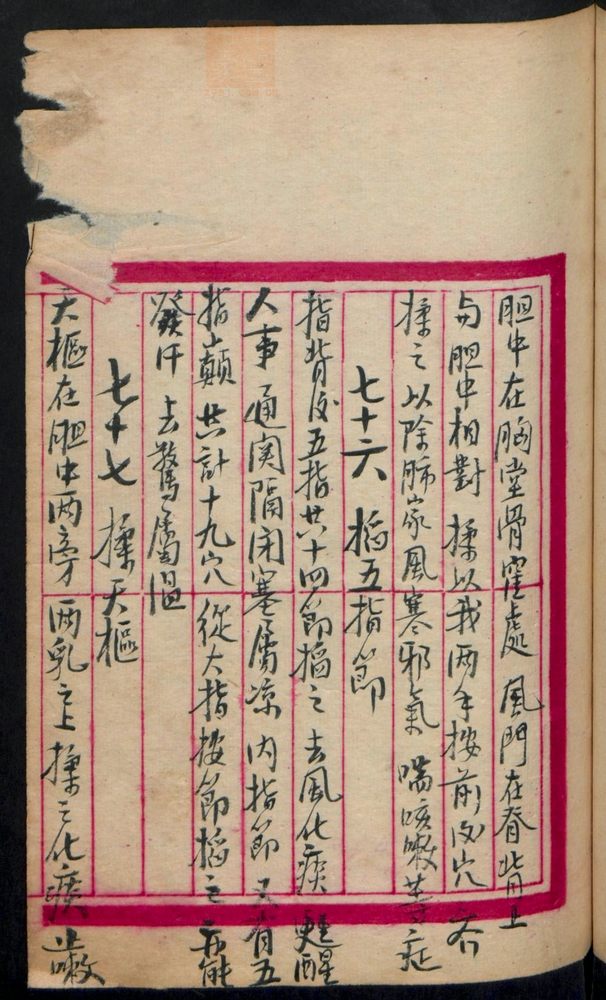 胆中在胸堂骨窪處 風門在脊背上
与胆中相對 揉以我两手按前后穴 齐
揉之以除肺家風寒邪氣 喘咳嗽等症
七十六 掐五指節
指背后五指共十四節掐之 去風化痰 甦醒
人事 通関隔闭塞属凉 内指節 又有五
指巔 共計十九穴 從大指按節掐之 亦能
發汗 去驚属温
七十七 揉天樞
天樞在胆中两旁 两乳之上 揉之化痰 止嗽